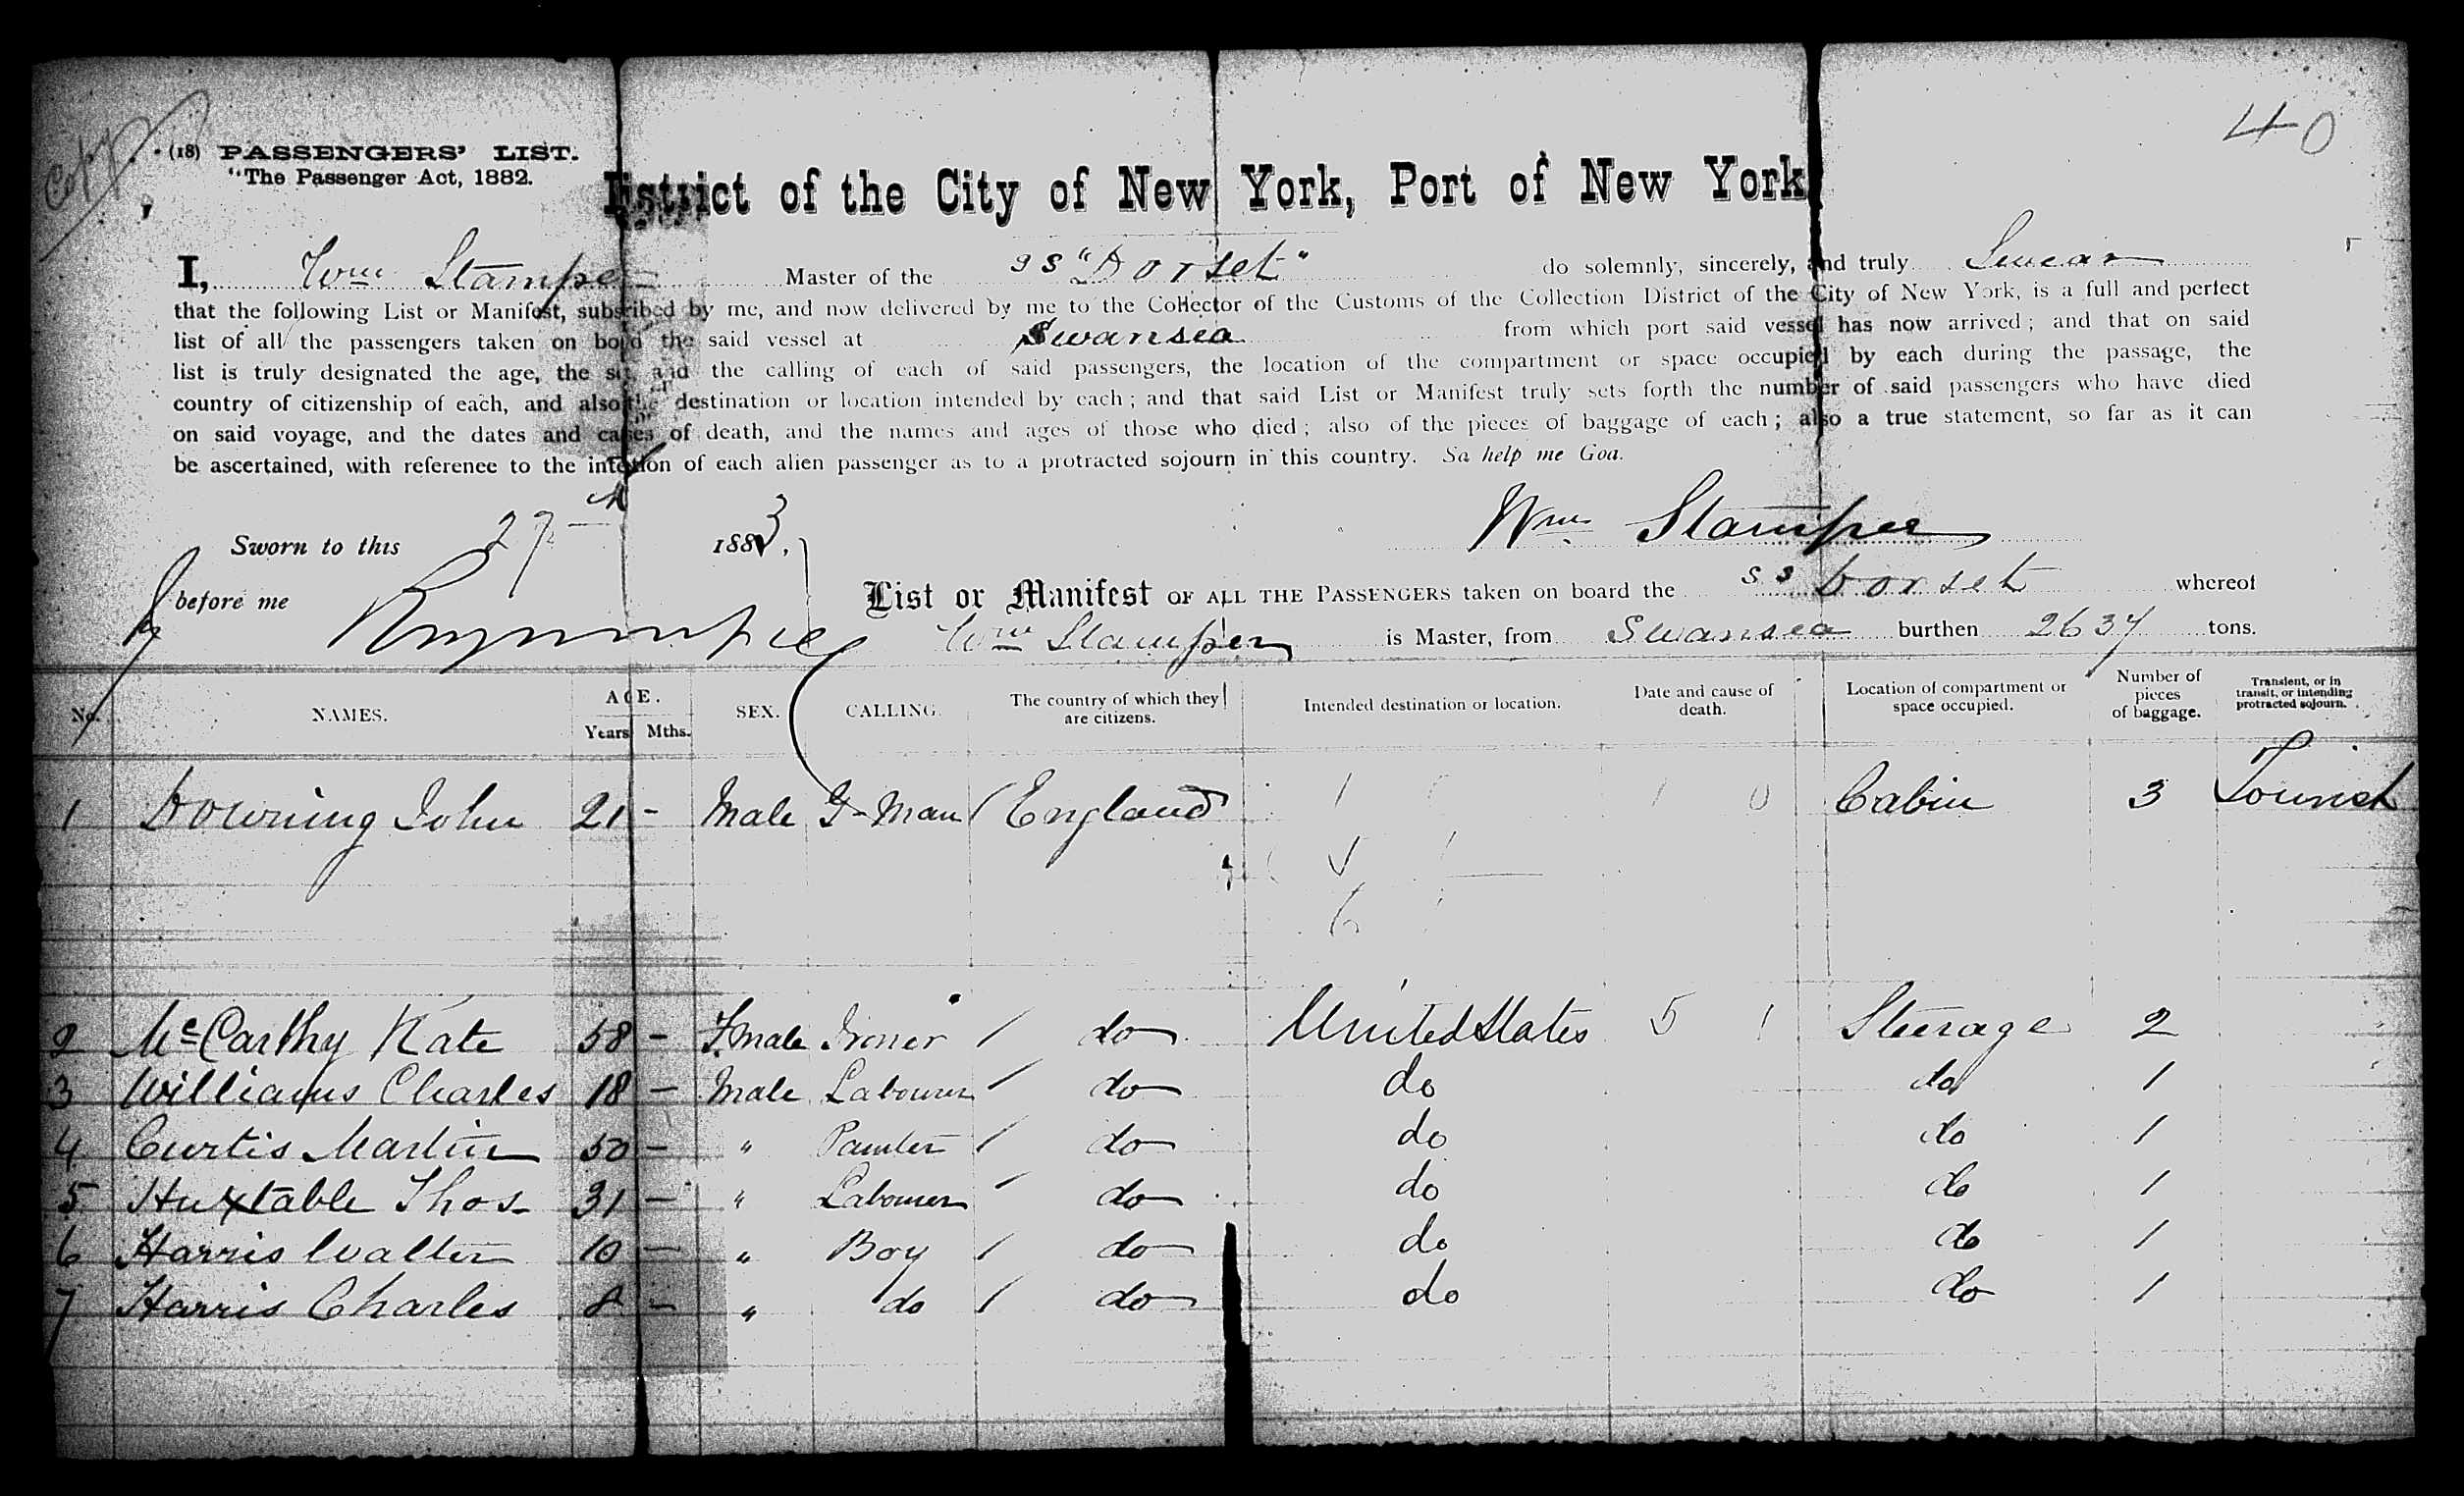 Copy
40
(18) PASSENGERS' LIST.
"The Passenger Act, 1882.
District of the City of New York, Port of New York
I, Wm Stamper Master of the SS "Dorset" do solemnly, sincerely, and truly Swear
that the following List or Manifest, subscribed by me, and now delivered by me to the Collector of the Customs of the Collection District of the City of New York, is a full and perfect
list of all the passengers taken on board the said vessel at Swansea from which port said vessel has now arrived; and that on said
list is truly designated the age, the sex, and the calling of each of said passengers, the location of the compartment or space occupied by each during the passage, the
country of citizenship of each, and also the destination or location intended by each; and that said List or Manifest truly sets forth the number of said passengers who have died
on said voyage, and the dates and causes of death, and the names and ages of those who died; also of the pieces of baggage of each; also a true statement, so far as it can
be ascertained, with reference to the intention of each alien passenger as to a protracted sojourn in this country. So help me God.
Sworn to this 27th 1883.
Wm Stamper
before me
List or Manifest OF ALL THE PASSENGERS taken on board the SS Dorset whereof
Wm Stamper is Master, from Swansea burthen 2637 tons.
No. NAMES. AGE. Years Mths. SEX. CALLING. The country of which they are citizens. Intended destination or location. Date and cause of death. Location of compartment or space occupied. Number of pieces of baggage. Transient, or in transit, or intending protracted sojourn.
1 Downing John 21 - Male G-Man / England Cabin 3 Tourist
2 McCarthy Kate 58 - F.male Ironer / do United States 5 1 Steerage 2
3 Williams Charles 18 - Male Labourer / do do do 1
4 Curtis Martin 50 - " Painter / do do do 1
5 Huxtable Thos. 31 - " Labourer / do do do 1
6 Harris Walter 10 - " Boy / do do do 1
7 Harris Charles 8 - " do / do do do 1